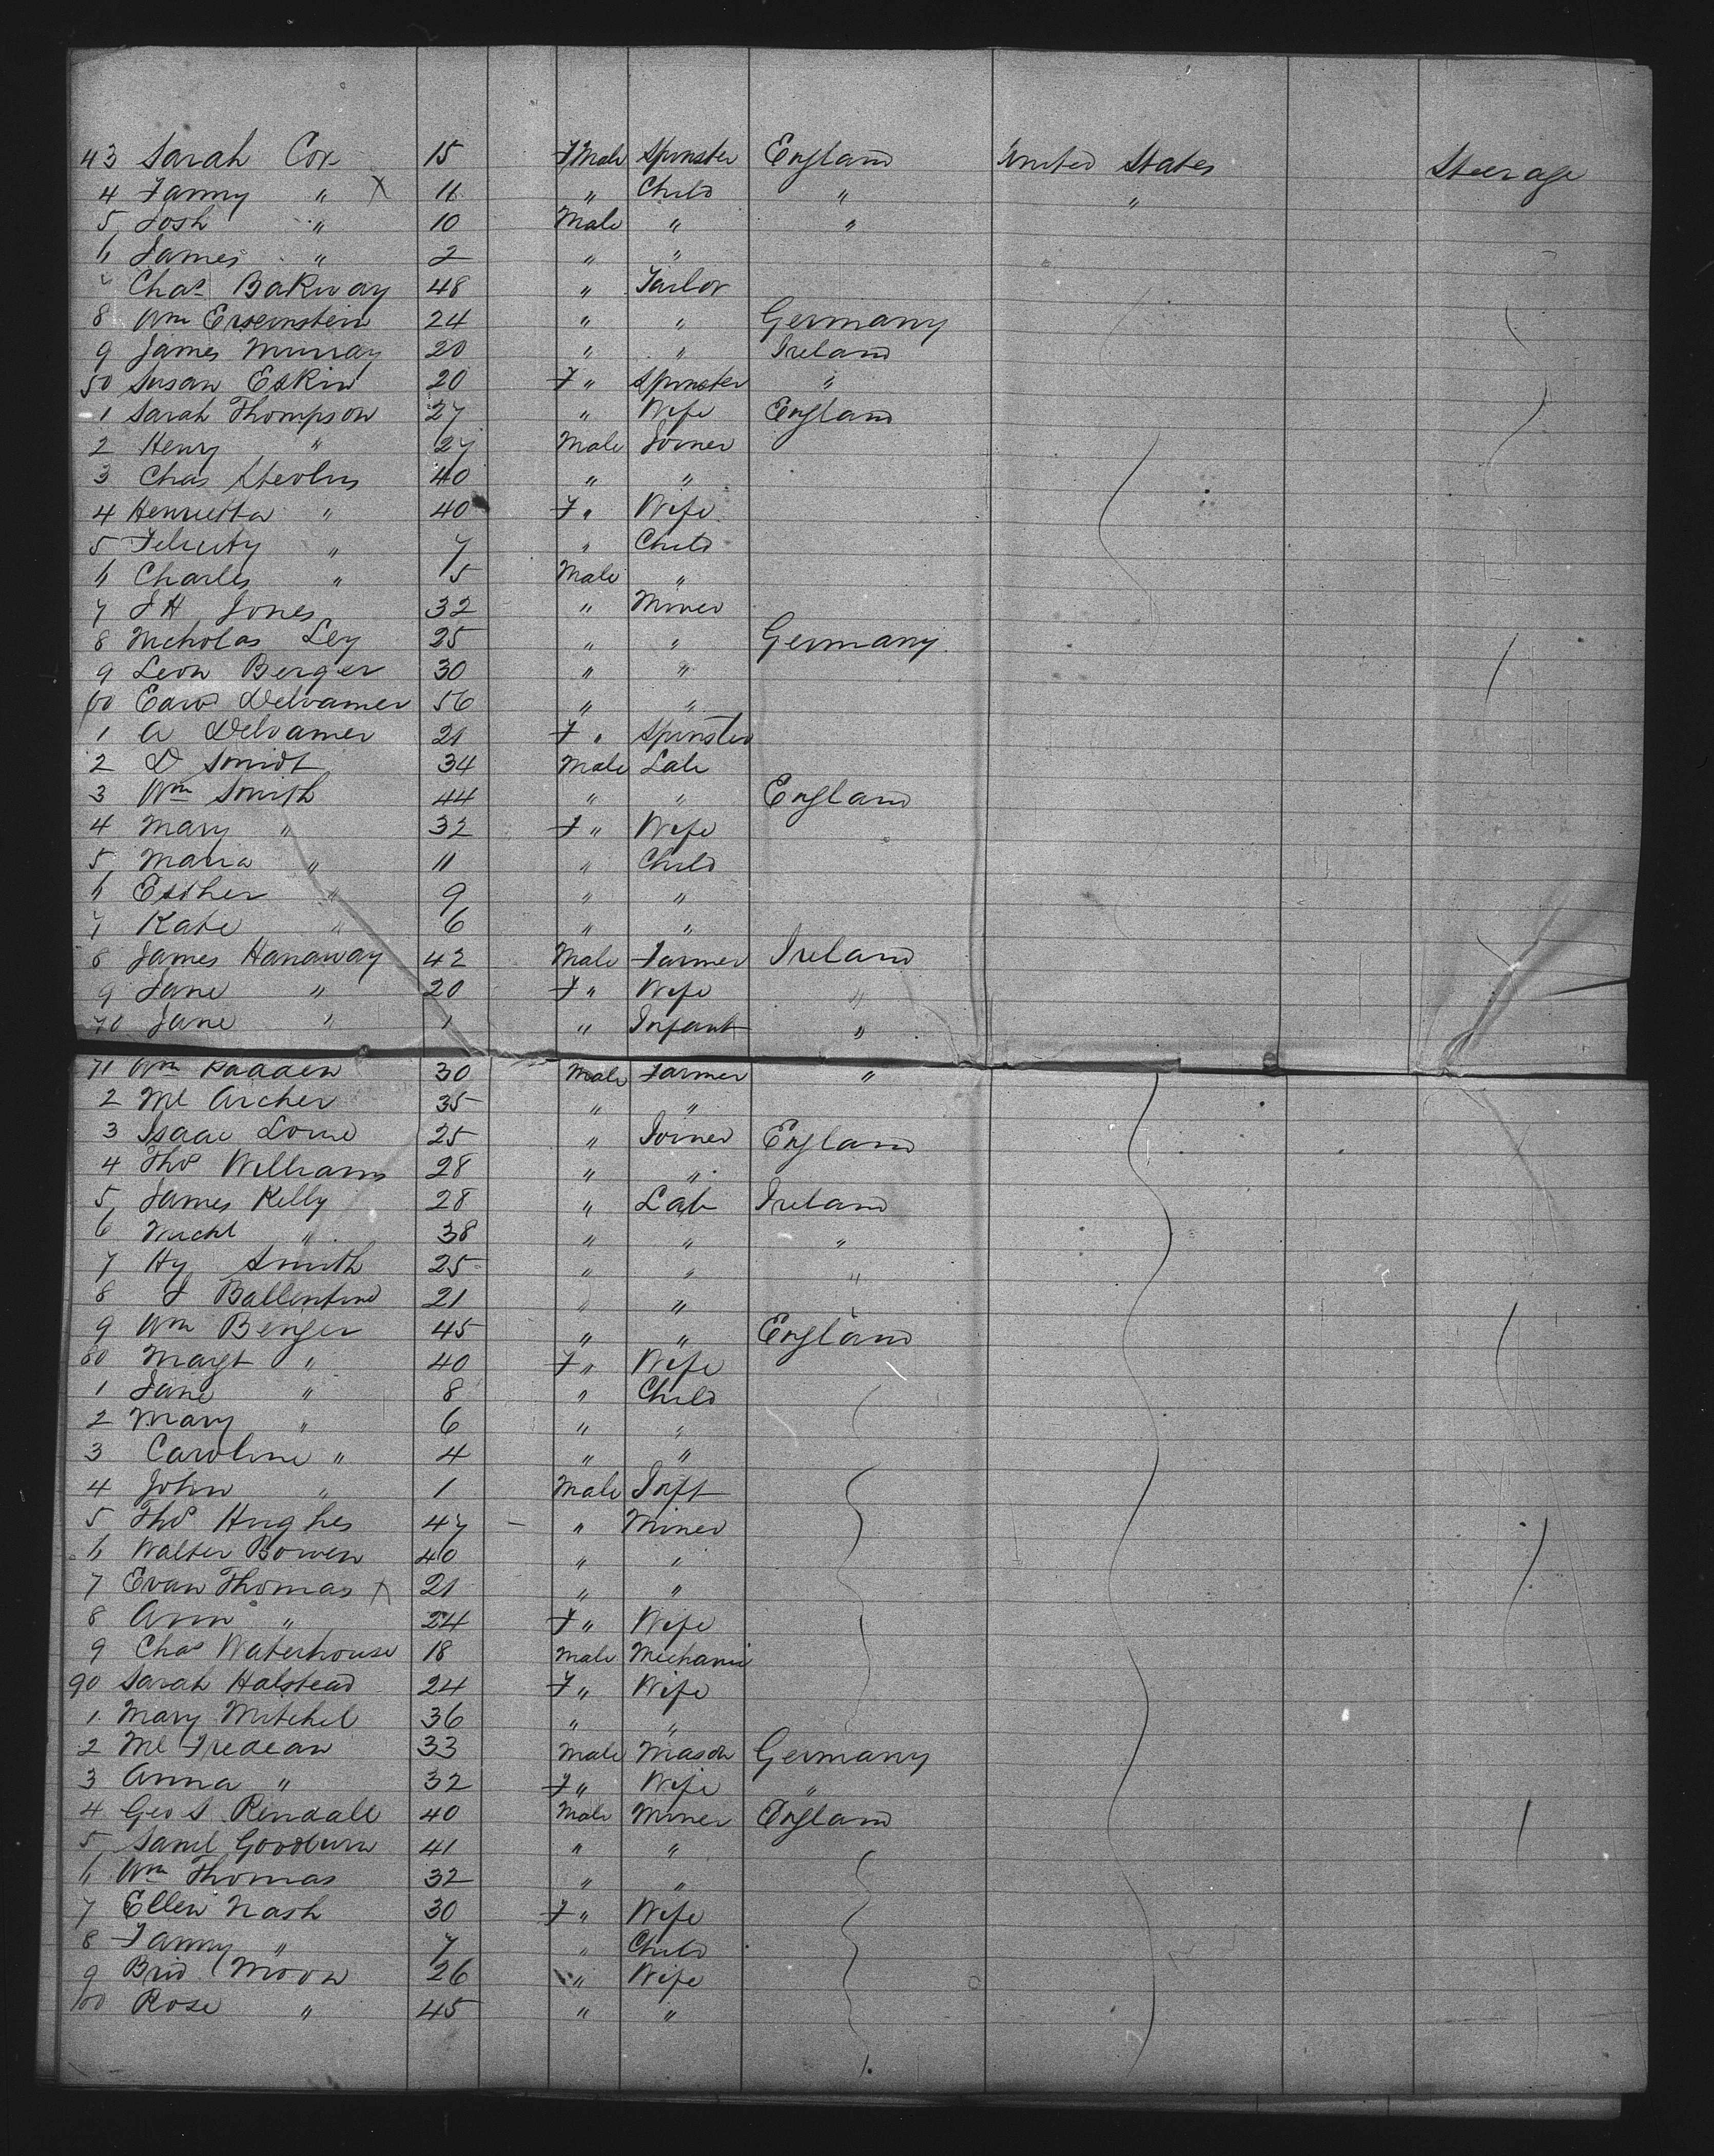 43 Sarah Cox 15 FMale Spinster England United States Steerage
4 Fanny " X 11 " Child " "
5 Josh " 10 Male " "
6 James " 2 " "
" Chas Bakway 48 " Tailor
8 Wm Erseinstein 24 " " Germany
9 James Murray 20 " " Ireland
50 Susan Eskin 20 F " Spinster "
1 Sarah Thompson 27 " Wife England
2 Henry " 27 Male Joiner
3 Chas 40 " "
4 Henrietta " 40 F " Wife
5 Felicity " 7 " Child
6 Charles " 5 Male "
7 J H Jones 32 " Miner
8 Nicholas Ley 25 " " Germany
9 Leon Berger 30 " "
60 Edwd Delvamer 56 " "
1 A Delvamer 21 F " Spinster
2 D Smidt 34 Male Lab
3 Wm Smith 44 " " England
4 Mary " 32 F " Wife
5 Maria " 11 " Child
6 Esther " 9 " "
7 Kate " 6 " "
8 James Hanaway 42 Male Farmer Ireland
9 Jane " 20 F " Wife "
70 Jane " 1 " Infant "
71 Wm Radden 30 Male Farmer "
2 Ml Archer 35 " "
3 Isaac Lorne 25 " Joiner England
4 Thos Williams 28 " "
5 James Kelly 28 " Lab Ireland
6 Michl " 38 " " "
7 Hy Smith 25 " " "
8 J Ballentine 21 " "
9 Wm Benger 45 " " England
80 Margt " 40 F " Wife
1 Jane " 8 " Child
2 Mary " 6 " "
3 Caroline " 4 " "
4 John " 1 Male Inft
5 Thos Hughes 47 - " Miner
6 Walter Bowen 40 " "
7 Evan Thomas X 21 " "
8 Ann " 24 F " Wife
9 Chas Waterhouse 18 Male Mechanic
90 Sarah Halstead 24 F " Wife
1 Mary Mitchel 36 " "
2 Ml Fredean 33 Male Mason Germany
3 Anna " 32 F " Wife "
4 Geo S Rendall 40 Male Miner England
5 Saml Goodburn 41 " "
6 Wm Thomas 32 " "
7 Ellen Nash 30 F " Wife
8 Fanny " 7 " Child
9 Brid Moon 26 " Wife
100 Rose " 45 " "